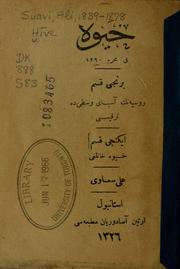 Suavi, Ali 1839-1878
Hive
DK
888
S83
1083465
خيوه
فی محرم ١٢٩٠
برنجی قسم
روسيه‌نك آسيای وسطی‌ده
ترقيسی
ايكنجی قسم
خيوه خانلغی
علی سعاوی
استانبول
آرتين آصادوريان مطبعه‌سی
١٣٢٦
LIBRARY
JUN 17 1966
UNIVERSITY OF TORONTO